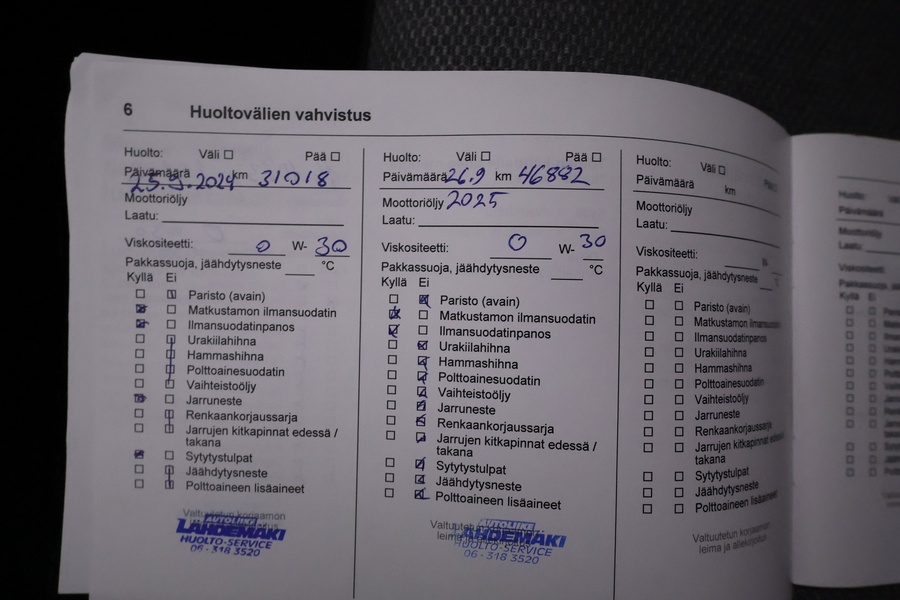 6 Huoltovälien vahvistus
Huolto: Väli ☐ Pää ☐
Päivämäärä 25.9.2024 km 31018
Moottoriöljy
Laatu:
Viskositeetti: 0 W- 30
Pakkassuoja, jäähdytysneste °C
Kyllä Ei
Paristo (avain)
Matkustamon ilmansuodatin
Ilmansuodatinpanos
Urakiilahihna
Hammashihna
Polttoainesuodatin
Vaihteistoöljy
Jarruneste
Renkaankorjaussarja
Jarrujen kitkapinnat edessä /
takana
Sytytystulpat
Jäähdytysneste
Polttoaineen lisäaineet
Valtuutetun korjaamon
AUTOLIIKE
LAHDEMÄKI
HUOLTO-SERVICE
06 - 318 3520
Huolto: Väli ☐ Pää ☐
Päivämäärä 26.9 km 46882
Moottoriöljy 2025
Laatu:
Viskositeetti: 0 W- 30
Pakkassuoja, jäähdytysneste °C
Kyllä Ei
Paristo (avain)
Matkustamon ilmansuodatin
Ilmansuodatinpanos
Urakiilahihna
Hammashihna
Polttoainesuodatin
Vaihteistoöljy
Jarruneste
Renkaankorjaussarja
Jarrujen kitkapinnat edessä /
takana
Sytytystulpat
Jäähdytysneste
Polttoaineen lisäaineet
AUTOLIIKE
LAHDEMÄKI
HUOLTO-SERVICE
06 - 318 3520
Huolto: Väli ☐ Pää ☐
Päivämäärä km
Moottoriöljy
Laatu:
Viskositeetti:
Pakkassuoja, jäähdytysneste
Kyllä Ei
Paristo (avain)
Matkustamon ilmansuodatin
Ilmansuodatinpanos
Urakiilahihna
Hammashihna
Polttoainesuodatin
Vaihteistoöljy
Jarruneste
Renkaankorjaussarja
Jarrujen kitkapinnat edessä /
takana
Sytytystulpat
Jäähdytysneste
Polttoaineen lisäaineet
Valtuutetun korjaamon
leima ja allekirjoitus